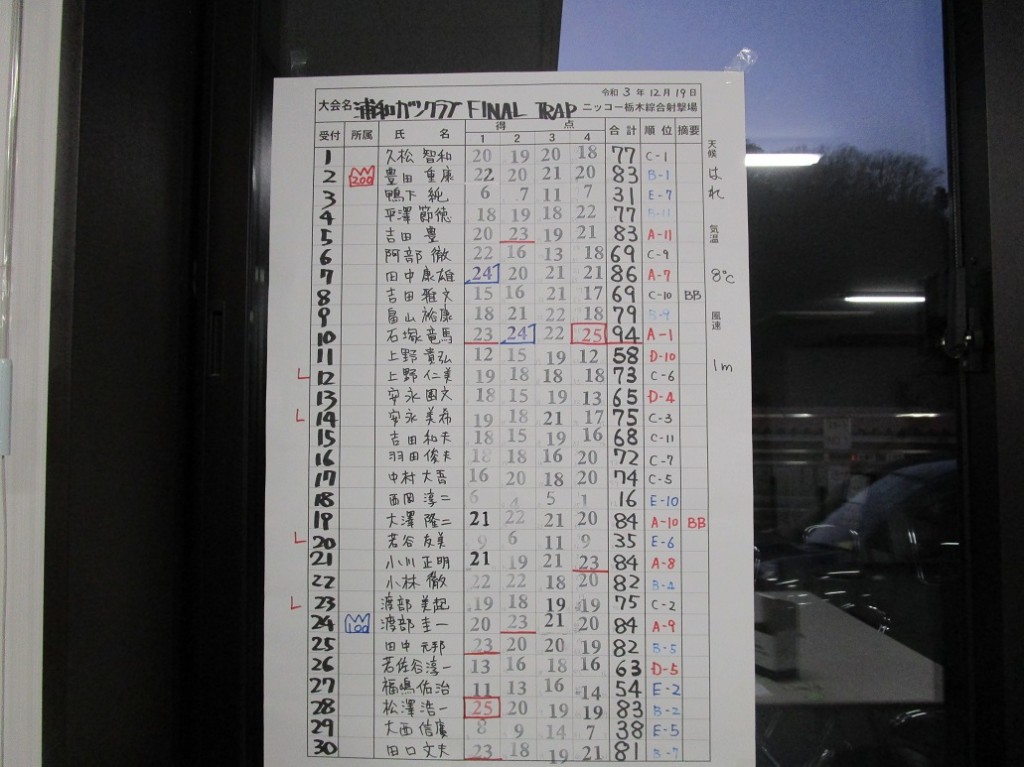 令和 3 年 12 月 19 日
大会名 浦和ガンクラブ FINAL TRAP ニッコー栃木綜合射撃場
受付 所属 氏 名 得 点 合計 順位 摘要
1 2 3 4
1 久松 智和 20 19 20 18 77 C-1
2 200 豊田 重康 22 20 21 20 83 B-1
3 鴨下 純 6 7 11 7 31 E-7
4 平澤 節徳 18 19 18 22 77 B-11
5 吉田 豊 20 23 19 21 83 A-11
6 阿部 徹 22 16 13 18 69 C-9
7 田中 康雄 24 20 21 21 86 A-7
8 吉田 雅文 15 16 21 17 69 C-10 BB
9 畠山 裕康 18 21 22 18 79 B-9
10 石塚 竜馬 23 24 22 25 94 A-1
11 上野 貴弘 12 15 19 12 58 D-10
L 12 上野 仁美 19 18 18 18 73 C-6
13 安永 国文 18 15 19 13 65 D-4
L 14 安永 美希 19 18 21 17 75 C-3
15 吉田 和夫 18 15 19 16 68 C-11
16 羽田 俊夫 18 18 16 20 72 C-7
17 中村 大吾 16 20 18 20 74 C-5
18 西岡 淳二 6 4 5 1 16 E-10
19 大澤 隆二 21 22 21 20 84 A-10 BB
L 20 若谷 友美 9 6 11 9 35 E-6
21 小川 正明 21 19 21 23 84 A-8
22 小林 徹 22 22 18 20 82 B-4
L 23 渡部 美起 19 18 19 19 75 C-2
24 100 渡部 圭一 20 23 21 20 84 A-9
25 田中 元邦 23 20 20 19 82 B-5
26 若佐谷 淳一 13 16 18 16 63 D-5
27 福嶋 佑治 11 13 16 14 54 E-2
28 松澤 浩一 25 20 19 19 83 B-2
29 大西 信廣 8 9 14 7 38 E-5
30 田口 文夫 23 18 19 21 81 B-7
天候 はれ
気温 8℃
風速 1m